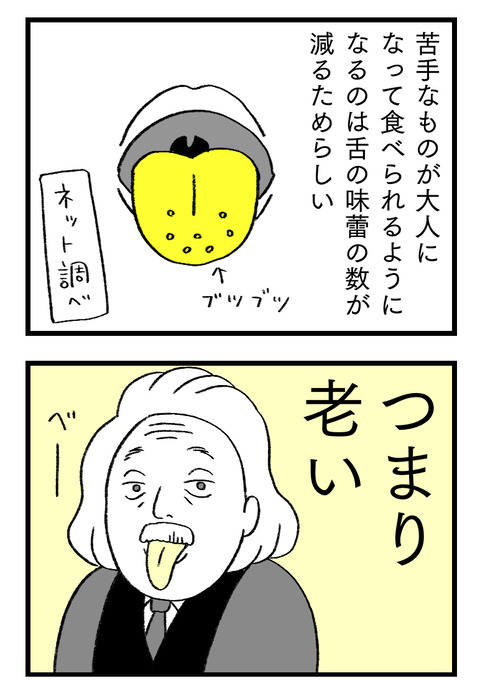 苦手なものが大人に
なって食べられるように
なるのは舌の味蕾の数が
減るためらしい
ブツブツ
ネット調べ
つまり
老い
べー